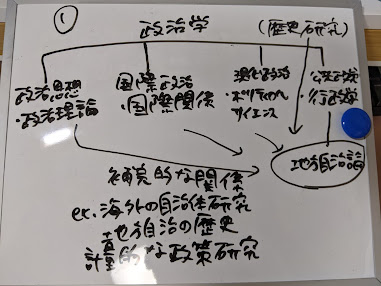 ①
政治学
(歴史研究)
政治思想
・政治理論
国際政治
・国際関係
現代政治
・ポリティカル
サイエンス
公共政策
・行政学
地方自治論
補完的な関係
ex. 海外の自治体研究
地方自治の歴史
計量的な政策研究